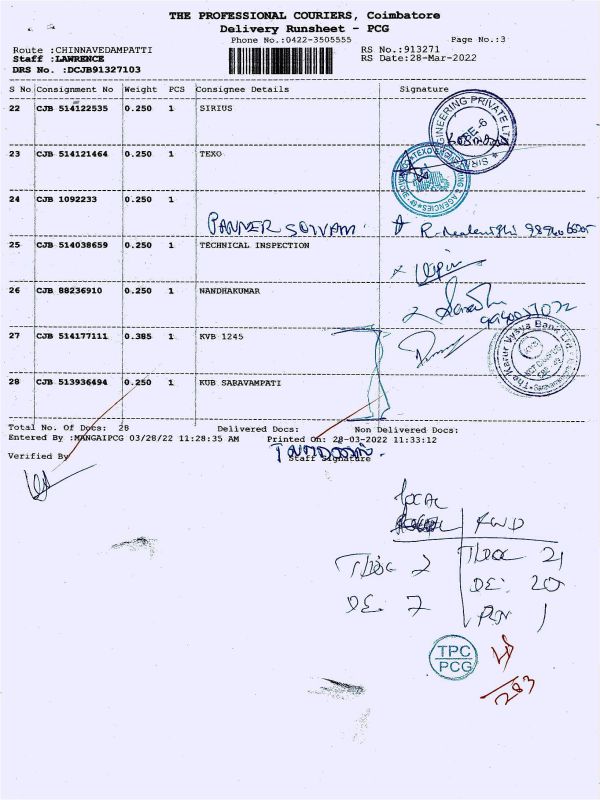 THE PROFESSIONAL COURIERS, Coimbatore
Delivery Runsheet - PCG
Phone No.:0422-3505555 Page No.:3
Route :CHINNAVEDAMPATTI RS No.:913271
Staff :LAWRENCE RS Date:28-Mar-2022
DRS No. :DCJB91327103
S No Consignment No Weight PCS Consignee Details Signature
22 CJB 514122535 0.250 1 SIRIUS
23 CJB 514121464 0.250 1 TEXO
24 CJB 1092233 0.250 1
PANNER SELVAM
25 CJB 514038659 0.250 1 TECHNICAL INSPECTION
26 CJB 88236910 0.250 1 NANDHAKUMAR
27 CJB 514177111 0.385 1 KVB 1245
The Karur Vysya Bank Ltd.
28 CJB 513936494 0.250 1 KUB SARAVAMPATI
Total No. Of Docs: 28 Delivered Docs: Non Delivered Docs:
Entered By :MANGAIPCG 03/28/22 11:28:35 AM Printed On: 28-03-2022 11:33:12
Verified By Staff Signature
LOCAL FWD
2 21
DE: 7 DE: 20
1
TPC
PCG
283